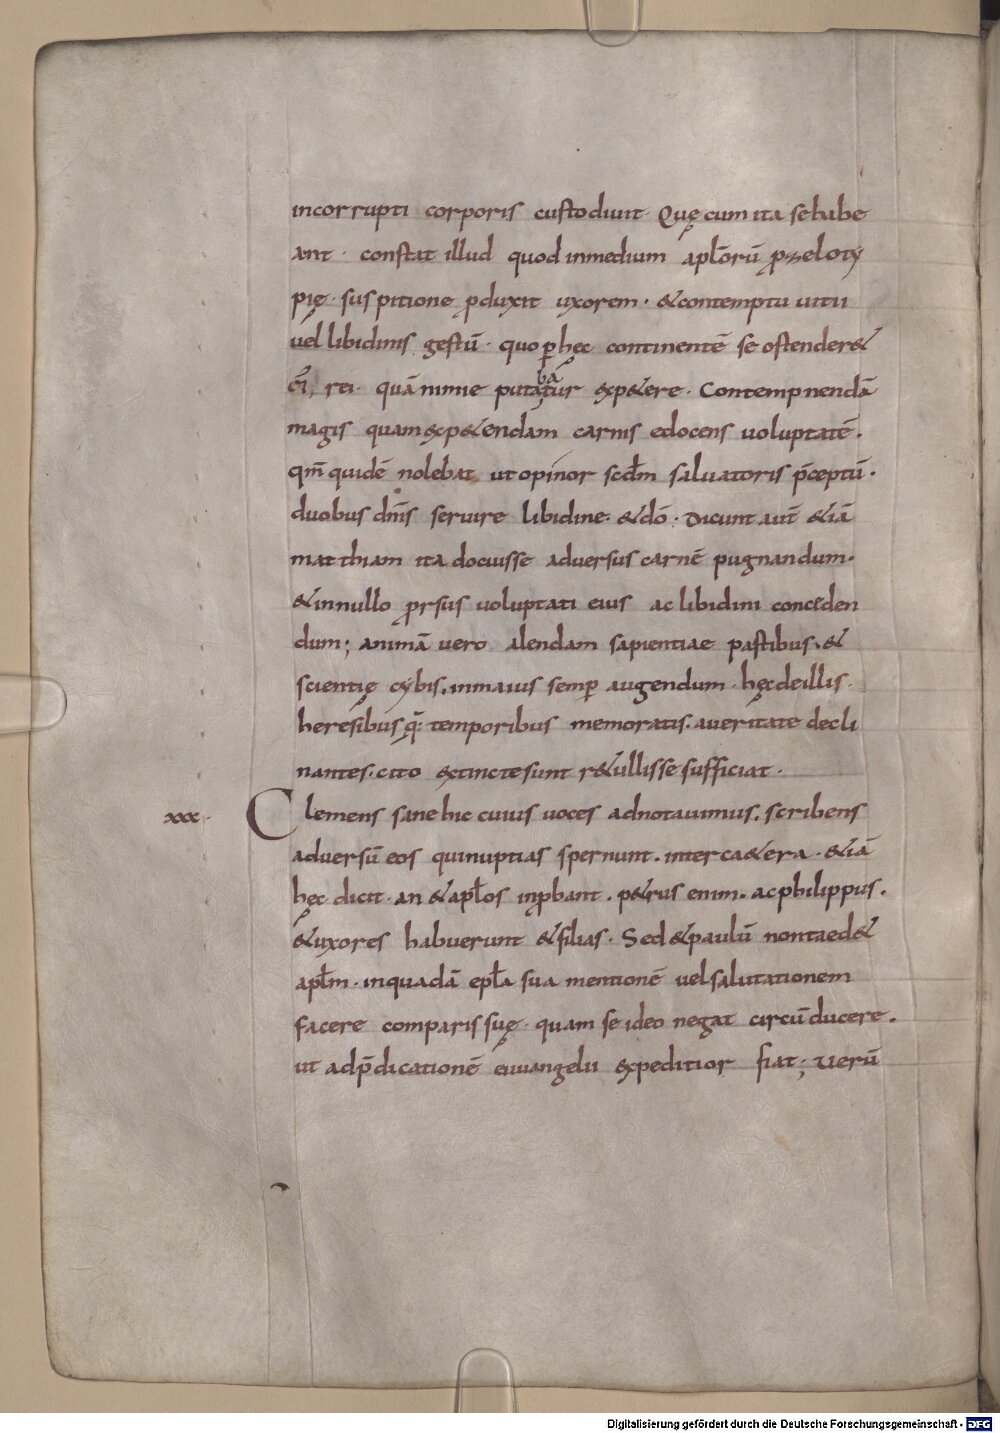 incorrupti corporis custodiuit· Quę cum ita se habe
ant· constat illud quod inmedium apl̄orū p̱ zeloty
pię· suspitione p̱duxit uxorem· &contemptu uitii
uel libidinis gestū· quo ꝑ hęc continentē se ostender&
ei, rei· quā nimie putabatur exp&ere· Contempnendā
magis quam exp&endam carnis edocens uoluptatē·
qm̄ quidē nolebat ut opinor scdm̄ saluatoris p̄ceptū·
duobus dn̄is seruire libidine· &dō· Dicunt aut̄ &iā
matthiam ita docuisse aduersus carnē pugnandum·
&innullo ꝓrsus uoluptati eius ac libidini conceden
dum; animā uero alendam sapientiae pastibus·&
scientię cybis, inmaius semꝑ augendum· hęc deillis·
heresibus q̨: temporibus memoratis· aueritate decli
nantes· cito extincte sunt r&ullisse sufficiat·
xxx· Clemens sane hic cuius uoces adnotauimus· scribens
aduersū eos qui nuptias spernunt· inter ca&era· &iā
hęc dicit· an &apl̄os inꝓbant· p&rus enim· ac philippus·
&uxores habuerunt &filias· Sed &paulū non taed&
apl̄m· inquadā epl̄a sua mentionē uel salutationem
facere comparis suę· quam se ideo negat circūducere·
ut adp̄dicationē euuangelii expeditior fiat; Uerū
Digitalisierung gefördert durch die Deutsche Forschungsgemeinschaft - DFG